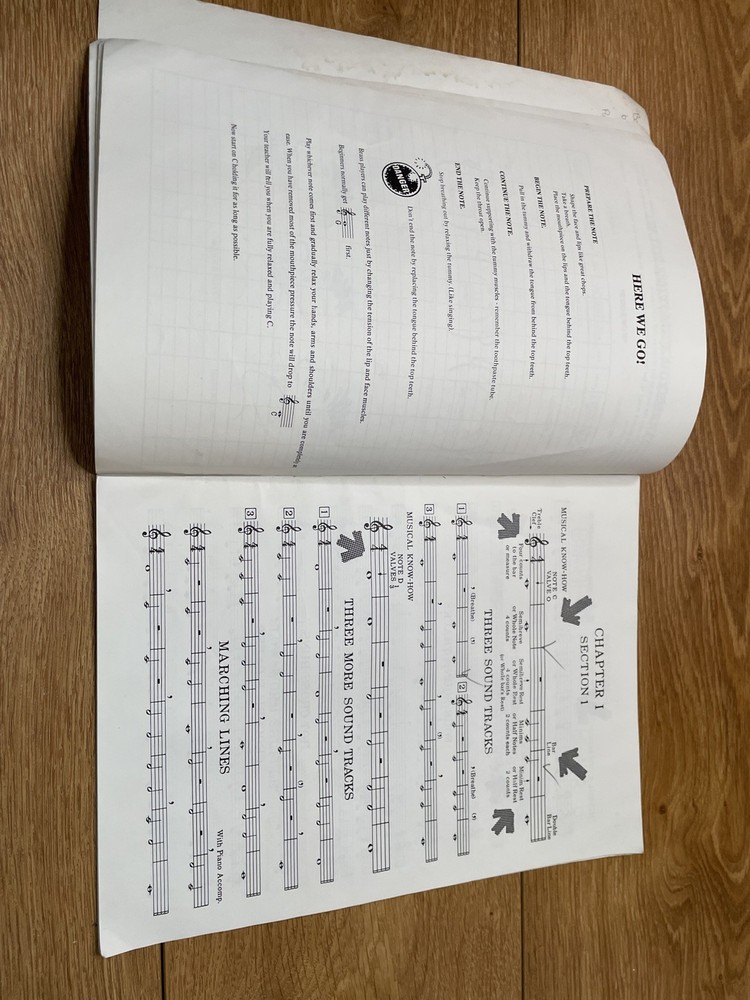 HERE WE GO!
PREPARE THE NOTE
Shape the face and lips like great chops.
Take a breath.
Place the mouthpiece on the lips and the tongue behind the top teeth.
BEGIN THE NOTE.
Pull in the tummy and withdraw the tongue from behind the top teeth.
CONTINUE THE NOTE.
Continue supporting with the tummy muscles - remember the toothpaste tube.
Keep the throat open.
END THE NOTE.
Stop breathing out by relaxing the tummy. (Like singing).
DANGER
Don't end the note by replacing the tongue behind the top teeth.
Brass players can play different notes just by changing the tension of the lip and face muscles.
Beginners normally get G first.
Play whichever note comes first and gradually relax your hands, arms and shoulders until you are completely
ease. When you have removed most of the mouthpiece pressure the note will drop to C
Your teacher will tell you when you are fully relaxed and playing C.
Now start on C holding it for as long as possible.
CHAPTER I
SECTION 1
MUSICAL KNOW-HOW
NOTE C
VALVE O
Treble
Clef
Bar
Line
Double
Bar Line
Four counts
to the bar
or measure
Semibreve
or Whole Note
4 counts
Semibreve Rest
or Whole Rest
4 counts
(or Whole bar's Rest)
Minims
or Half Notes
2 counts each
Minim Rest
or Half Rest
2 counts
THREE SOUND TRACKS
1 (Breathe) 2 (Breathe)
3
MUSICAL KNOW-HOW
NOTE D
VALVES 1/3
THREE MORE SOUND TRACKS
1
2
3
MARCHING LINES
With Piano Accomp.